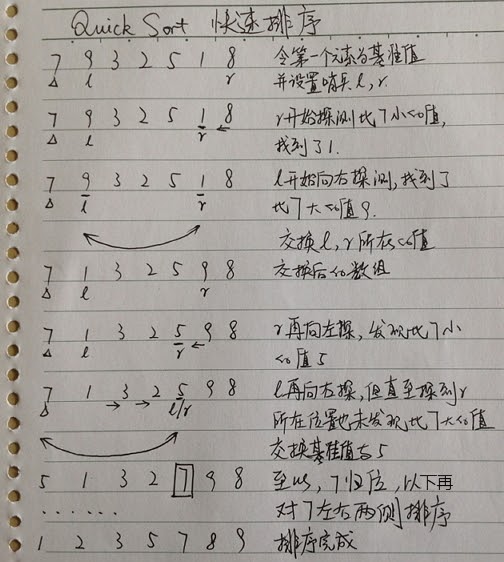 Quick Sort 快速排序
7 9 3 2 5 1 8 令第一个元素为基准值
△ l r 并设置哨兵 l, r.
7 9 3 2 5 1 8 r开始探测比7小的值,
△ l r ← 找到了1.
7 9 3 2 5 1 8 l开始向右探测,找到了
△ l r 比7大的值9.
交换l, r所在的值
7 1 3 2 5 9 8 交换后的数组
△ l r
7 1 3 2 5 9 8 r再向左探,发现比7小
△ l r ← 的值5
7 1 3 2 5 9 8 l再向右探,但直至探到r
△ → → l/r 所在位置也未发现比7大的值
交换基准值与5
5 1 3 2 7 9 8 至此, 7归位, 以下再
...... 对7左右两侧排序
1 2 3 5 7 8 9 排序完成